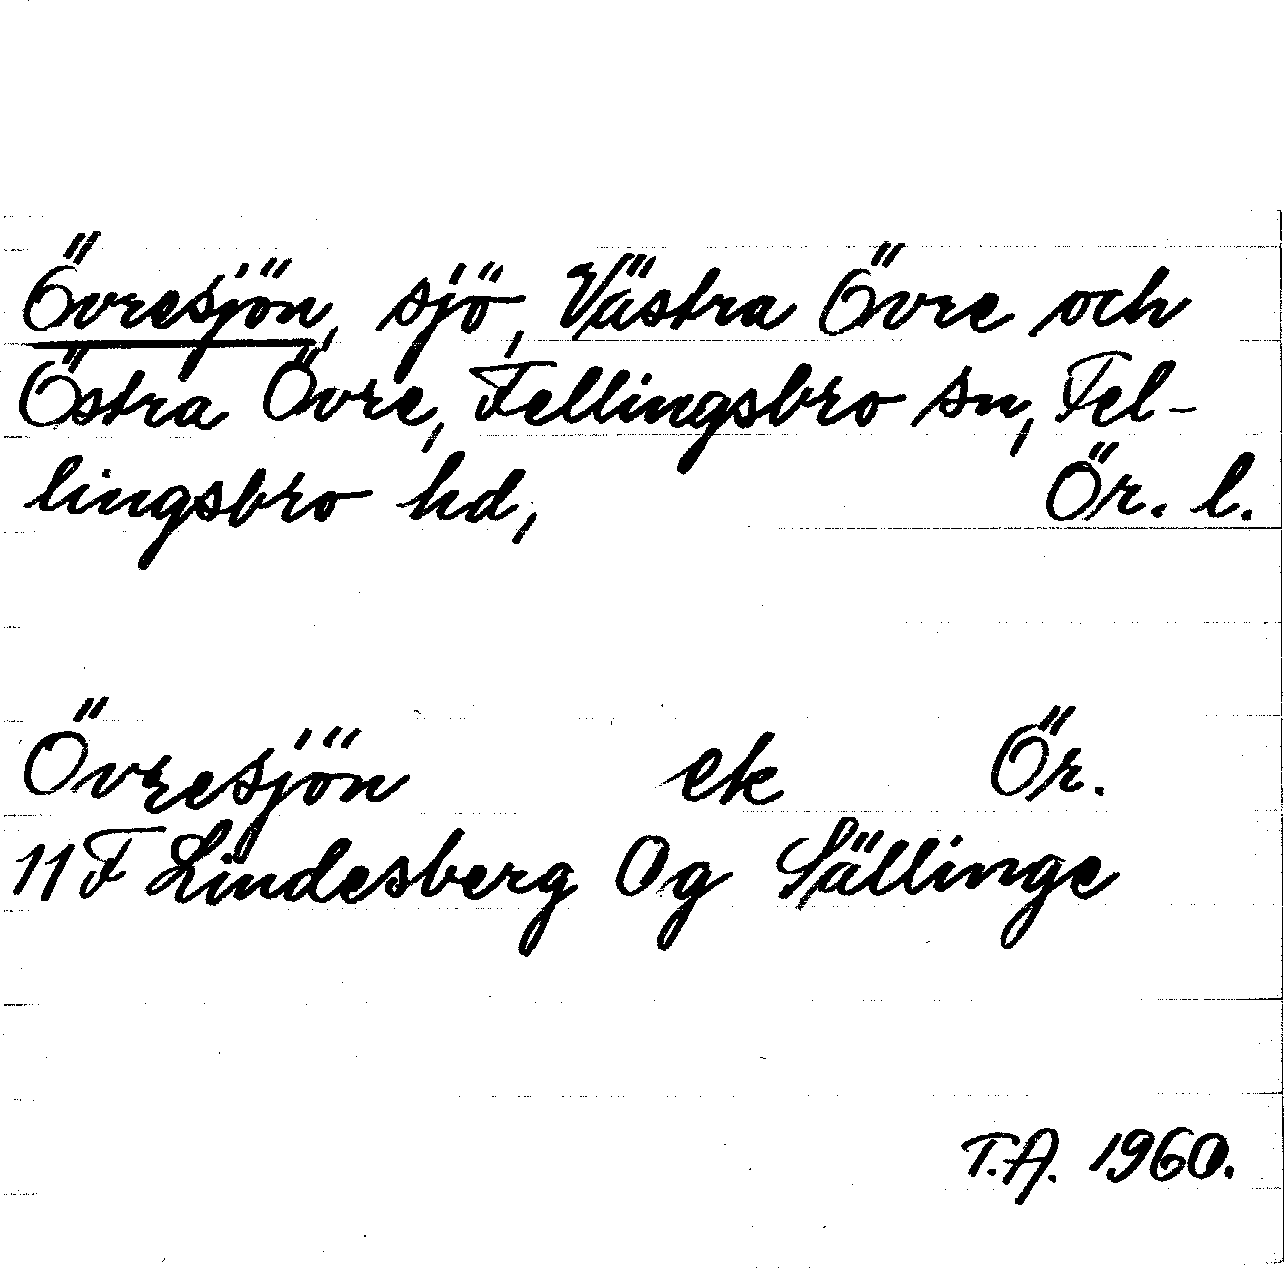 Övresjön, sjö, Västra Övre och
Östra Övre, Fellingsbro sn, Fel-
lingsbro hd, Ör. l.
Övresjön ek Ör.
11F Lindesberg Og Sällinge
T.A. 1960.